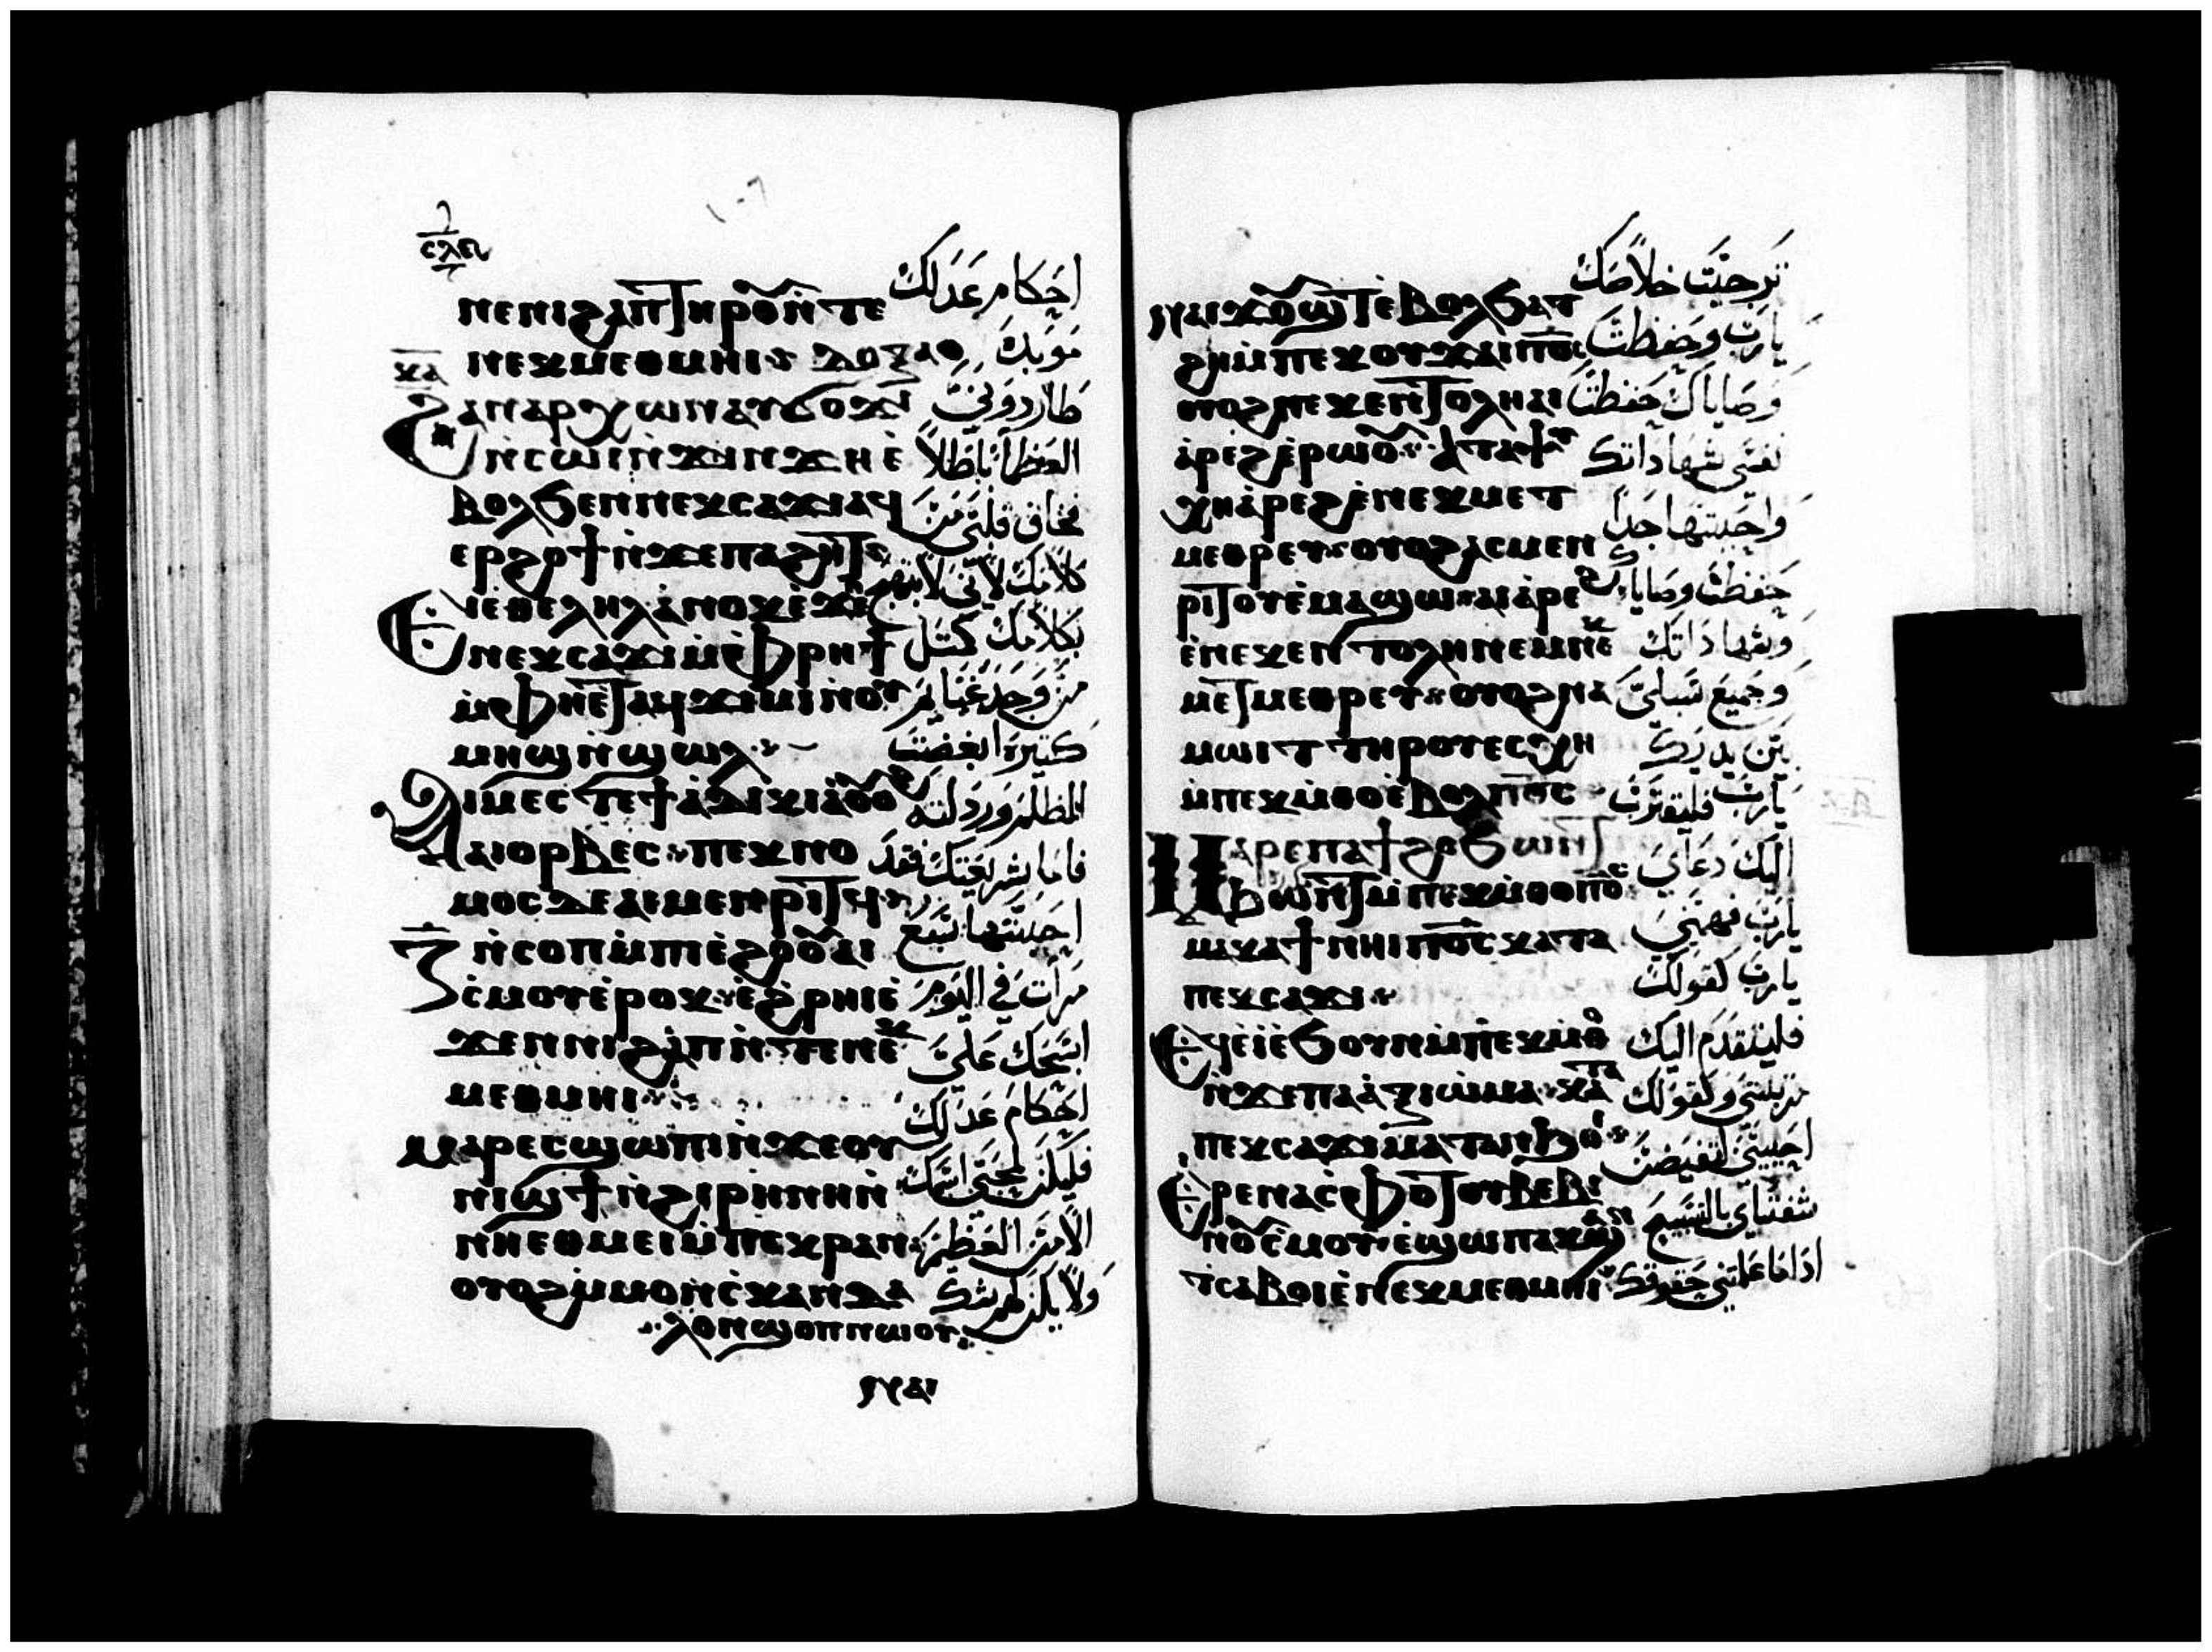 ⲥⲗⲉ
ⲛⲉ ⲛⲓϩⲁⲡ ⲧⲏⲣⲟⲩ ⲛ̀ⲧⲉ
ⲛⲉⲕⲙⲉⲑⲙⲏⲓ ⲇⲟⲝⲁ
ⲕⲁ
ϩⲁⲛⲁⲣⲭⲱⲛ ⲁⲩϭⲟϫⲓ
ⲛ̀ⲥⲱⲓ ⲛ̀ϫⲓⲛϫⲏ ⲉ̀
ⲃⲟⲗϧⲉⲛ ⲛⲉⲕⲥⲁϫⲓ ⲁϥ
ⲉⲣϩⲟϯ ⲛ̀ϫⲉ ⲡⲁϩⲏⲧ
ⲉⲓⲉ̀ⲑⲉⲗⲏⲗ ⲁⲛⲟⲕ ⲉ̀ϫⲉ
ⲛⲉⲕⲥⲁϫⲓ ⲙ̀ⲫⲣⲏϯ
ⲙ̀ⲫⲏⲉⲧⲁϥϫⲓⲙⲓ ⲛ̀ⲟⲩ
ⲙⲏϣ ⲛ̀ϣⲱⲗ
ⲁⲓⲙⲉⲥⲧⲉ ϯⲁ̀ⲇⲓⲕⲓⲁ̀ ⲟⲩⲟϩ
ⲁⲓⲟⲣⲃⲉⲥ ⲡⲉⲕⲛⲟ
ⲙⲟⲥ ⲇⲉ ⲁⲓⲙⲉⲛⲣⲓⲧϥ
ⲍ̄ ⲛ̀ⲥⲟⲡ ⲙ̀ⲡⲓⲉ̀ϩⲟⲟⲩ ⲁⲓ
ⲥ̀ⲙⲟⲩ ⲉ̀ⲣⲟⲕ ⲉ̀ϩ̀ⲣⲏⲓ ⲉ̀
ϫⲉⲛ ⲛⲓϩⲁⲡ ⲛ̀ⲧⲉ ⲛⲉⲕ
ⲙⲉⲑⲙⲏⲓ
ⲙⲁⲣⲉⲥϣⲱⲡⲓ ⲛ̀ϫⲉ ⲟⲩ
ⲛⲓϣϯ ⲛ̀ϩⲓⲣⲏⲛⲏ ⲛ̀
ⲛⲏⲉⲑⲙⲉⲓ ⲙ̀ⲡⲉⲕⲣⲁⲛ
ⲟⲩⲟϩ ⲙ̀ⲙⲟⲛ ⲥ̀ⲕⲁⲛⲇⲁ
ⲗⲟⲛ ϣⲟⲡ ⲛⲱⲟⲩ
احكام عدلك
موبدك
طاردوني
العظما باطلاً
فخاف قلبي من
كلامك لاني لابتهج
بكلامك كمثل
من وجد غنايم
كتيره ابغضت
الظلم وردلته
فاما شريعتك فقد
احببتها سبع
مرات في اليوم
اسبحك علي
احكام عدلك
فليكن لمحبي اسمك
الامن العظيم
ولا يكن لهم شك
ⲛⲁⲓϫⲟⲩϣⲧ ⲉ̀ⲃⲟⲗ ϧⲁⲧ
ϩⲏ ⲙ̀ⲡⲉⲕⲟⲩϫⲁⲓ ⲡⲟ̄ⲥ̄
ⲟⲩⲟϩ ⲛⲉⲕⲉⲛⲧⲟⲗⲏ ⲁⲓ
ⲁ̀ⲣⲉϩ ⲉ̀ⲣⲱⲟⲩ ⲁ̀ ⲧⲁⲯⲩ
ⲭⲏ ⲁ̀ⲣⲉϩ ⲉ̀ⲛⲉⲕⲙⲉⲧ
ⲙⲉⲑⲣⲉⲩ ⲟⲩⲟϩ ⲁⲥⲙⲉⲛ
ⲣⲓⲧⲟⲩ ⲉ̀ⲙⲁϣⲱ ⲁⲓⲁ̀ⲣⲉ
ⲉ̀ⲛⲉⲕⲉⲛⲧⲟⲗⲏ ⲛⲉⲙ ⲛⲉⲕ
ⲙⲉⲧⲙⲉⲑⲣⲉⲩ ⲟⲩⲟϩ ⲛⲁ
ⲙⲱⲓⲧ ⲧⲏⲣⲟⲩ ⲉⲥⲭⲏ
ⲙ̀ⲡⲉⲕⲙ̀ⲑⲟ ⲉ̀ⲃⲟⲗ ⲡⲟ̄ⲥ̄
ⲙⲁⲣⲉ ⲡⲁϯϩⲟ ϧⲱⲛⲧ
ⲙ̀ⲡⲉⲕⲙ̀ⲑⲟ ⲡⲟ̄ⲥ̄
ⲙⲁⲕⲁϯ ⲛⲏⲓ ⲡⲟ̄ⲥ̄ ⲕⲁⲧⲁ
ⲡⲉⲕⲥⲁϫⲓ
ⲉϥⲉ̀ⲓ̀ ⲉ̀ϧⲟⲩⲛ ⲙ̀ⲡⲉⲕⲙ̀ⲑⲟ
ⲛ̀ϫⲉ ⲡⲁⲁ̀ⲝⲓⲱⲙⲁ ⲕⲁⲧⲁ
ⲡⲉⲕⲥⲁϫⲓ ⲙⲁⲧⲁⲛϧⲟⲓ
ⲉⲣⲉ ⲛⲁⲥ̀ⲫⲟⲧⲟⲩ ⲃⲉⲃⲓ
ⲛⲟⲩⲥ̀ⲙⲟⲩ ⲉ̀ϣⲱⲡ ⲁⲕϣⲁⲛ
ⲧⲥⲁⲃⲟⲓ ⲉ̀ⲛⲉⲕⲙⲉⲑⲙⲏⲓ
ترجيت خلاصك
يارب وحفظت
وصاياك حفظت
نفسي شهاداتك
واحببتها جداً
حفظت وصاياك
وشهاداتك
وجميع سبلي
بين يديك
يارب فليقترب
اليك دعاي
يارب فهمني
يارب كقولك
فليتقدم اليك
وكقولك
احييني لتفيض
شفتاي بالتسبيح
اذا ما علمتني حقوقك